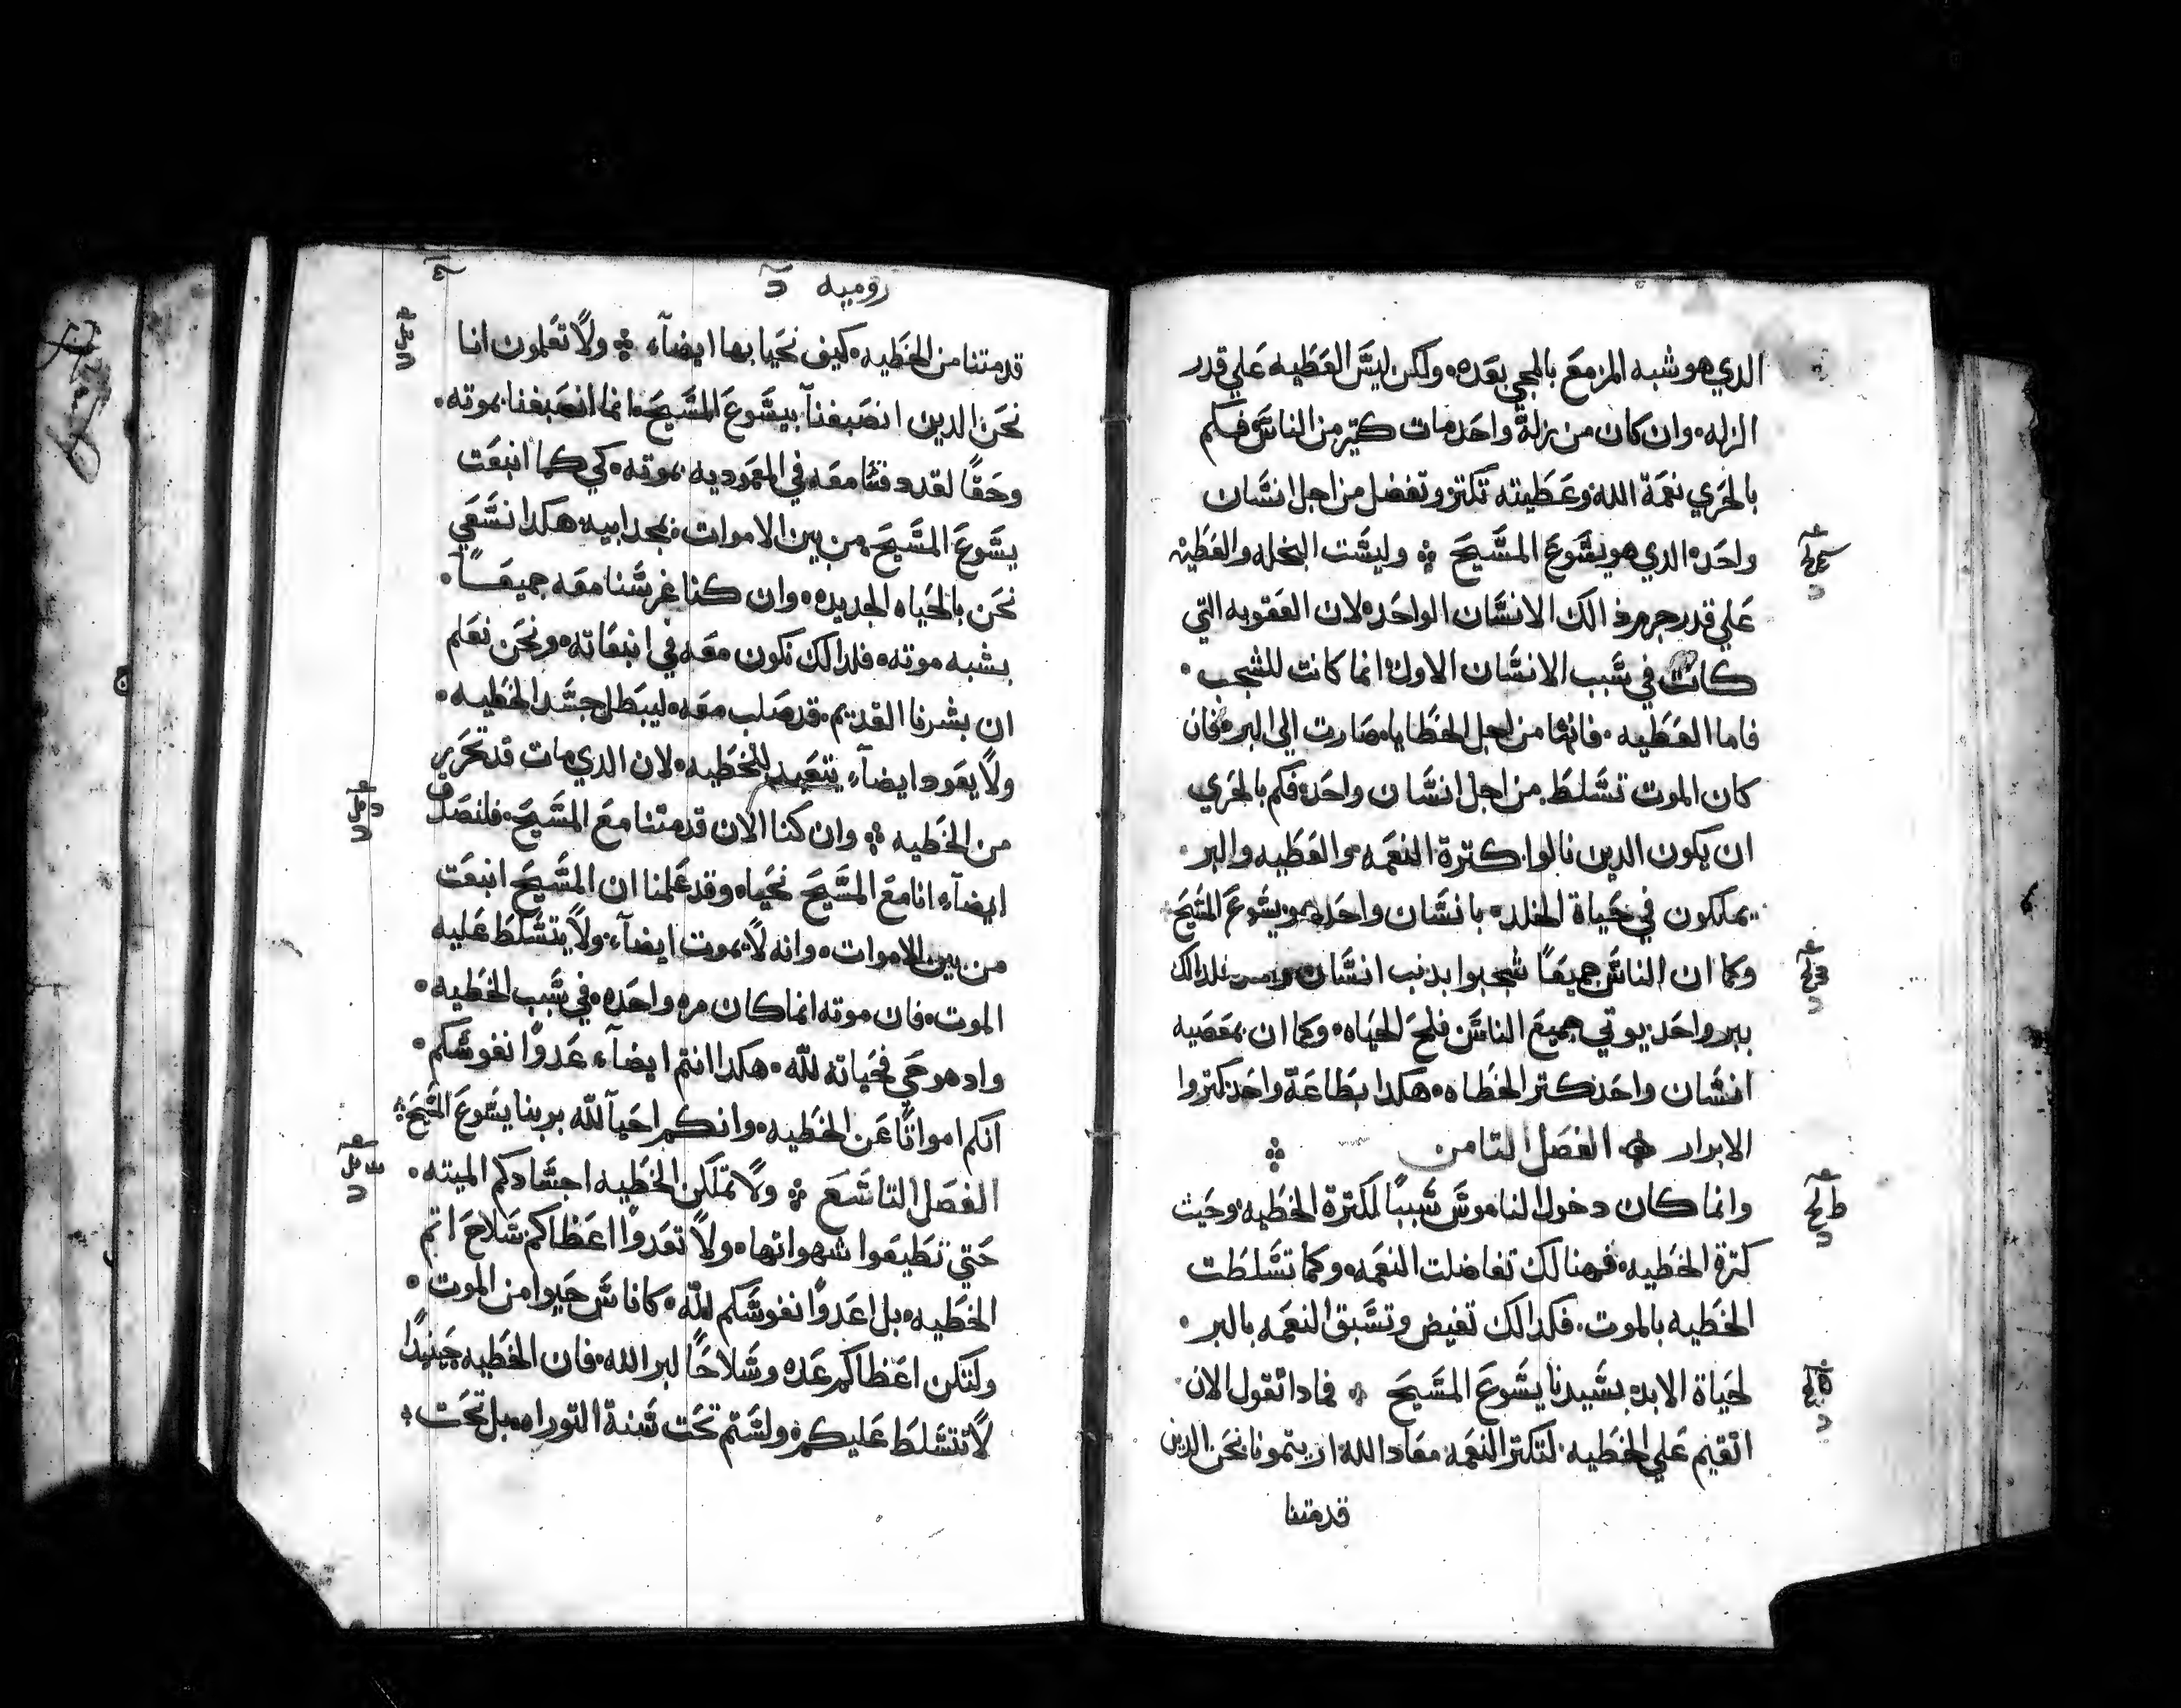 الدي هو شبه المزمع بالمجي بعده ولكن ليس العطيه علي قدر
الزله وان كان من زلة واحد مات كتير من الناس فكم
بالحري نعمة الله وعطيته تكتر وتفضل من اجل انسان
واحد الدي هو يسوع المسيح وليست النحله والعطيه
علي قدر جرم دالك الانسان الواحد لان العقوبه التي
كانت في سبب الانسان الاول انما كانت للشجب
فاما العطيه فانها من اجل الخطايا صارت الي البر فان
كان الموت تسلط من اجل انسان واحد فكم بالحري
ان يكون الدين نالوا كترة النعمه والعطيه والبر
يملكون في حياة الخلد بانسان واحد هو يسوع المسيح
وكما ان الناس جميعًا شجبوا بدنب انسان فلدالك
ببر واحد يوتي جميع الناس فلح الحياه وكما ان بمعصيه
انسان واحد كتر الخطاه هكدا بطاعة واحد كتروا
الابرار الفصل التامن
وانما كان دخول الناموس سببًا لكترة الخطيه وحيث
كترة الخطيه فهنالك تفاضلت النعمه وكما تسلطت
الخطيه بالموت فكدالك تفيض وتسبق النعمه بالبر
لحياة الابد بسيدنا يسوع المسيح فمادا نقول الان
انقيم علي الخطيه لتكتر النعمه معاد الله ان يتمونا نحن الدين
قدمتنا
روميه
قدمتنا من الخطيه كيف نحيا بها ايضآء ولا تعلمون انا
نحن الدين انصبغنآ بيسوع المسيح انما انصبغنا بموته
وحقًا لقد دفنا معه في المعموديه بموته كي كما انبعت
يسوع المسيح من بين الاموات بمجد ابيه هكدا نسعي
نحن بالحياه الجديده وان كنا غرسنا معه جميعًا
بشبه موته فلدالك نكون معه في انبعاته ونحن نعلم
ان بشرنا القديم قد صلب معه ليبطل جسد الخطيه
ولا يعود ايضآء يتعبد للخطيه لان الدي مات قد تحرر
من الخطيه وان كنا الان قدمتنا مع المسيح فلنصدق
ايضآء انا مع المسيح نحياه وقد علمنا ان المسيح انبعت
من بين الاموات وانه لا يموت ايضآء ولا يتسلط عليه
الموت فان موته انما كان مره واحده في سبب الخطيه
واد هو حي فحياته لله هكدا انتم ايضآء عدوا نفوسكم
انكم امواتًا عن الخطيه وانكم احيآ لله بربنا يسوع المسيح
الفصل التاسع ولا تملكن الخطيه اجسادكم الميته
حتي تطيعوا شهواتها ولا تعدوا اعظاكم سلاح اتم
الخطيه بل اعدوا نفوسكم لله كاناس حيوا من الموت
ولتكن اعظاكم عده وسلاحًا لبر الله فان الخطيه حينيدًا
لا تتسلط عليكم ولستم تحت سنة التوراه بل تحت